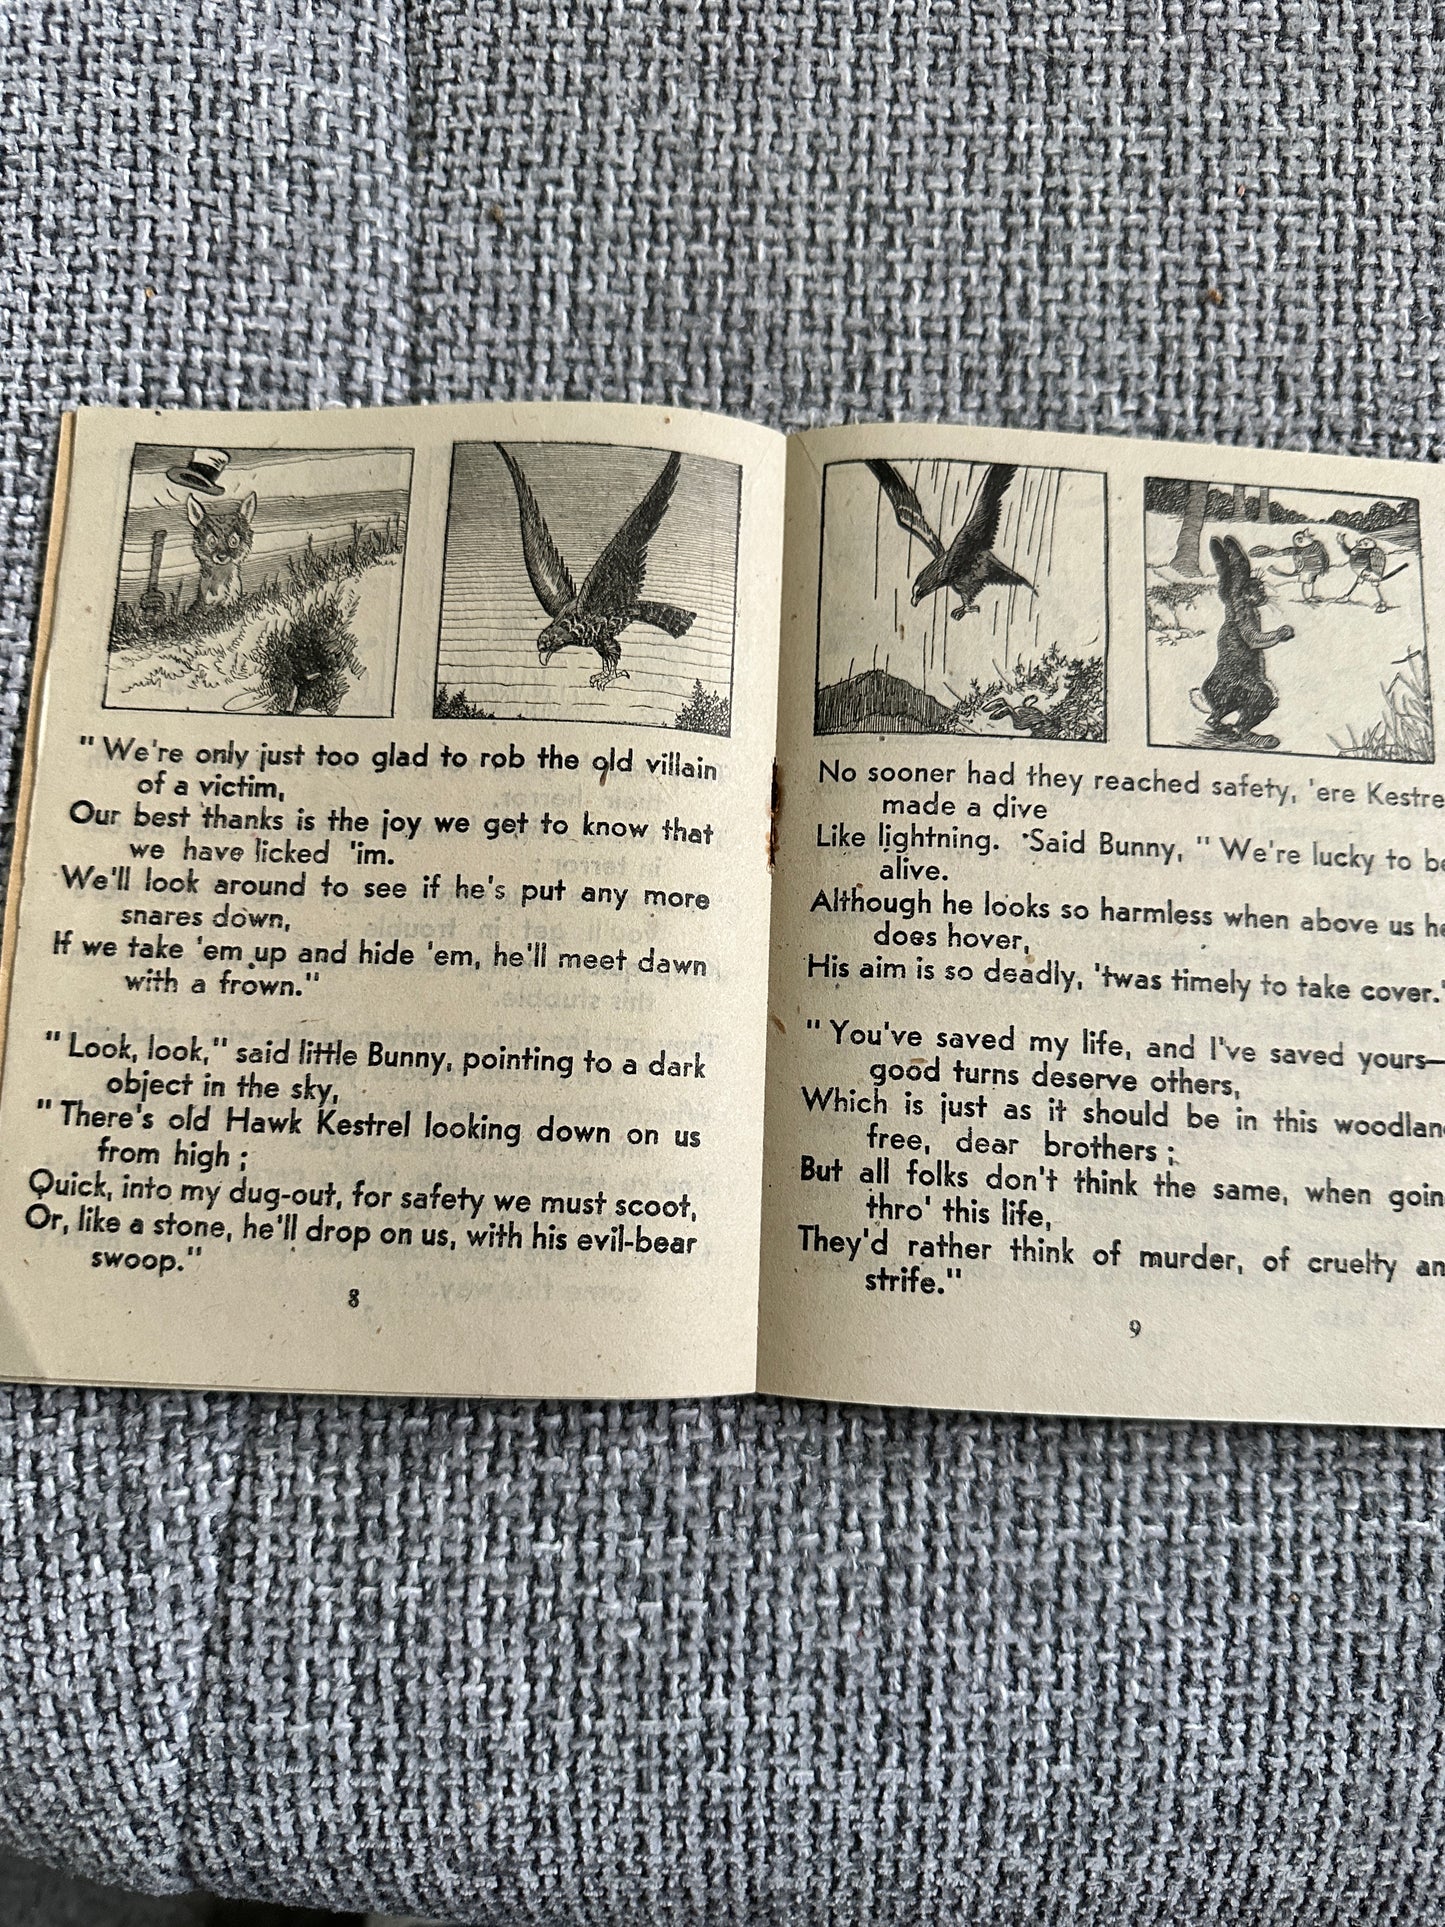 "We're only just too glad to rob the old villain
of a victim,
Our best thanks is the joy we get to know that
we have licked 'im.
We'll look around to see if he's put any more
snares down,
If we take 'em up and hide 'em, he'll meet dawn
with a frown."
"Look, look," said little Bunny, pointing to a dark
object in the sky,
"There's old Hawk Kestrel looking down on us
from high ;
Quick, into my dug-out, for safety we must scoot,
Or, like a stone, he'll drop on us, with his evil-bear
swoop."
8
No sooner had they reached safety, 'ere Kestre
made a dive
Like lightning. Said Bunny, "We're lucky to be
alive.
Although he looks so harmless when above us he
does hover,
His aim is so deadly, 'twas timely to take cover."
"You've saved my life, and I've saved yours—
good turns deserve others,
Which is just as it should be in this woodlan
free, dear brothers ;
But all folks don't think the same, when goin
thro' this life,
They'd rather think of murder, of cruelty an
strife."
9